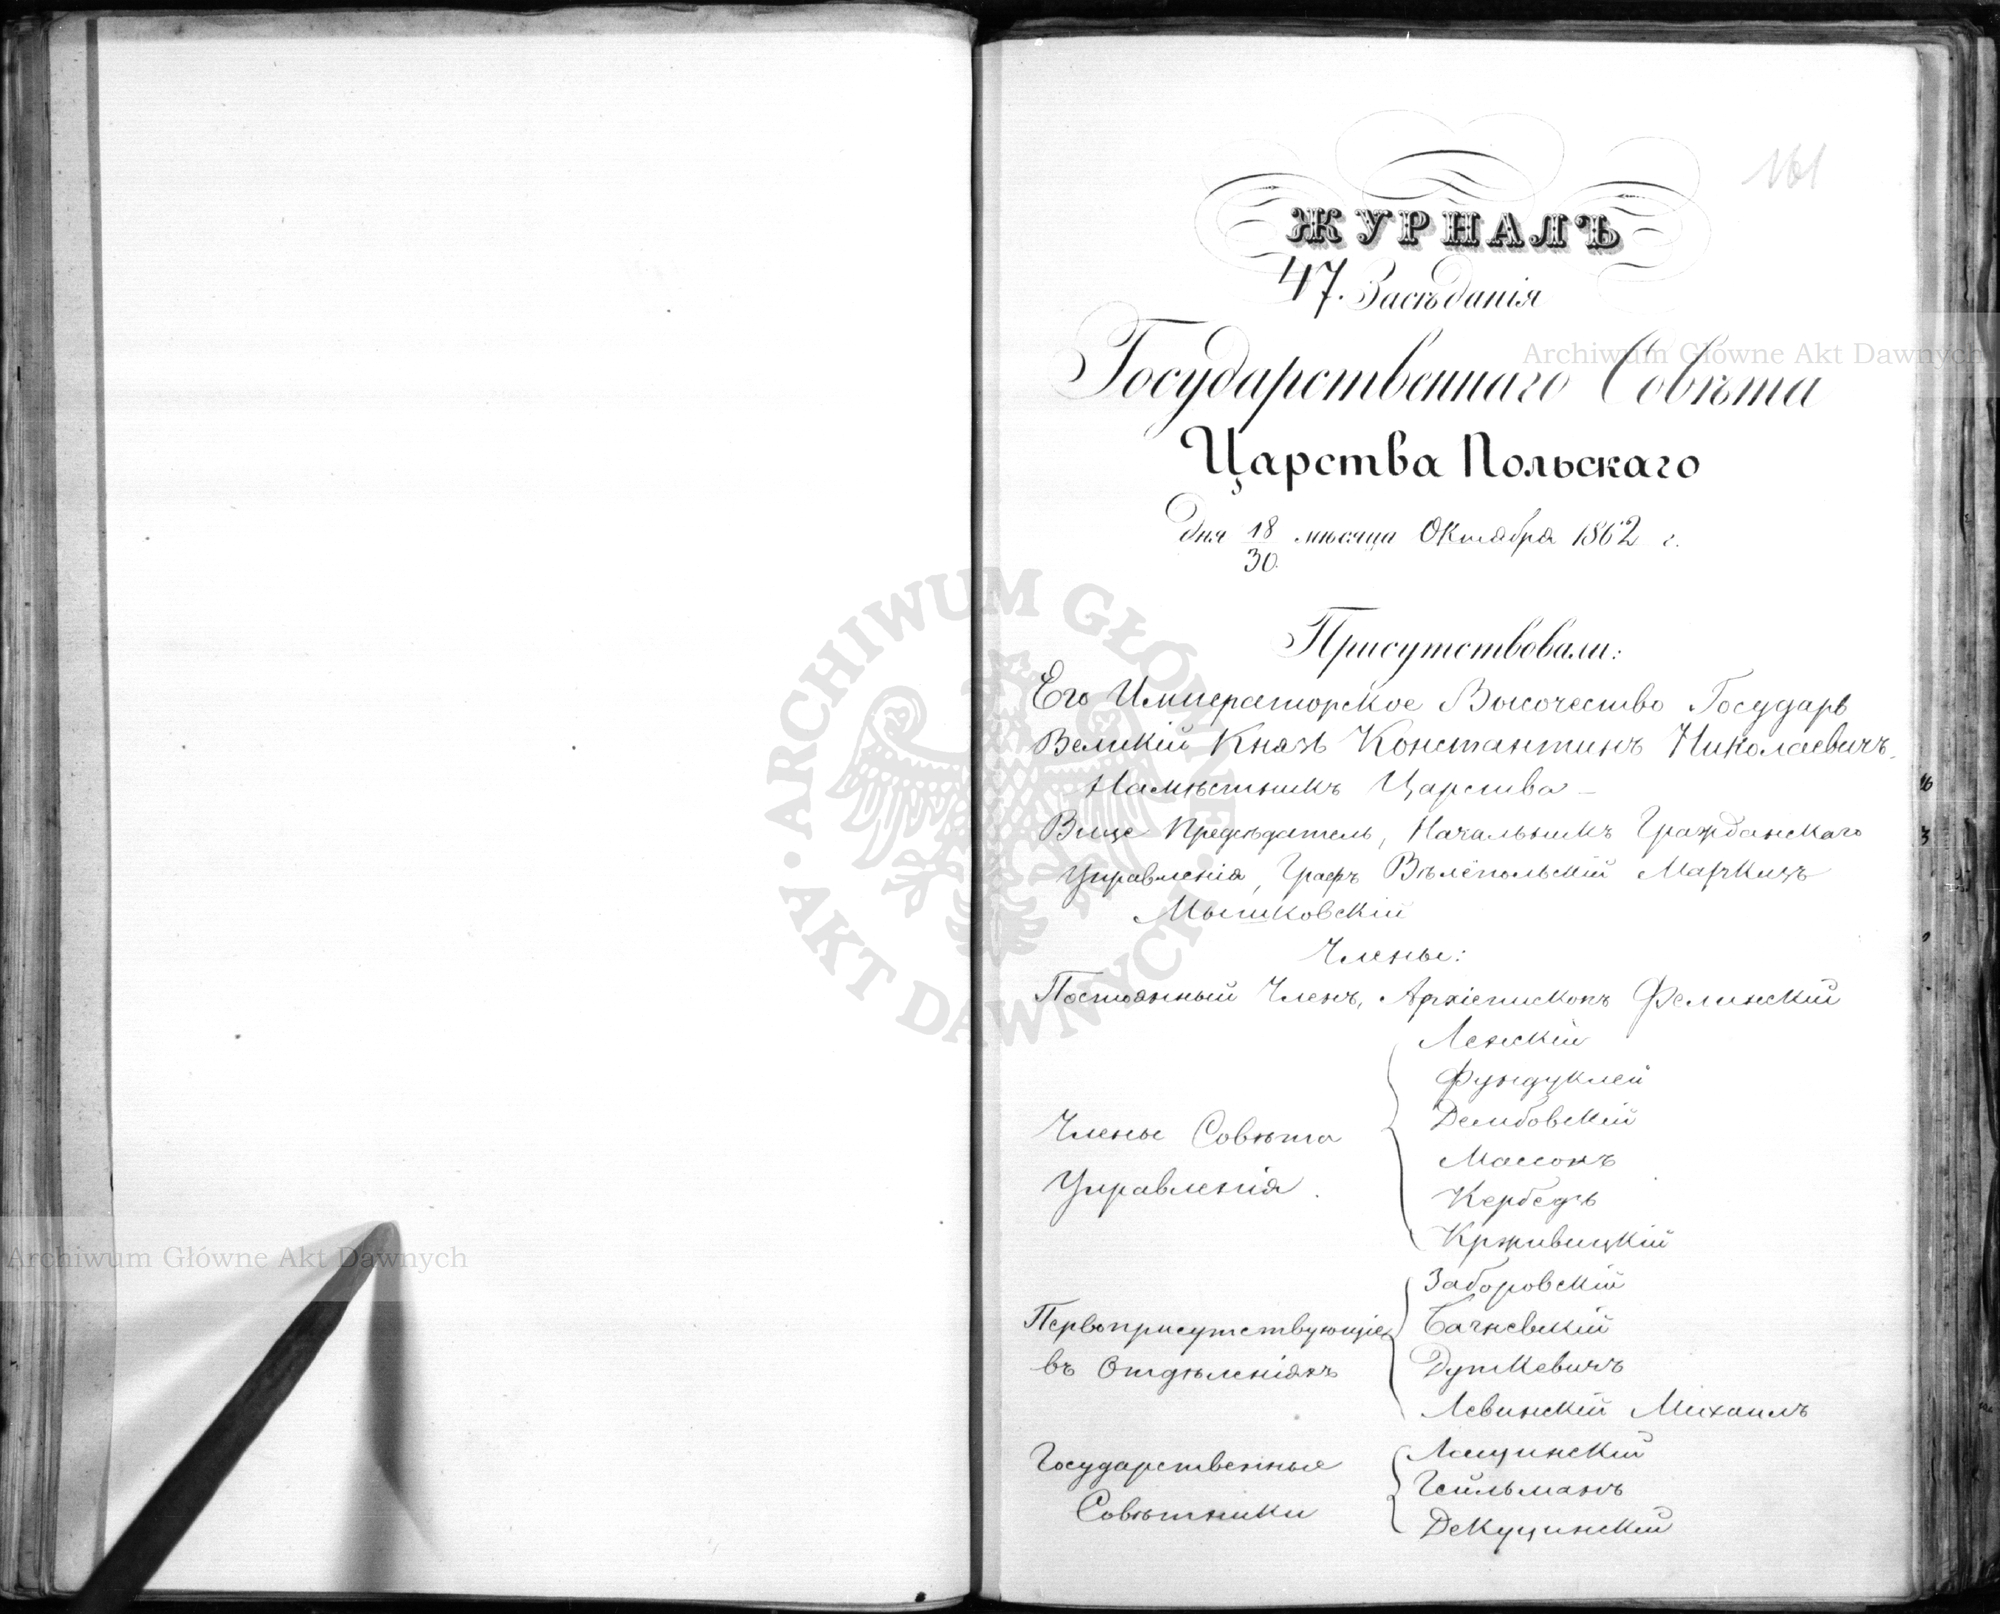 161
ЖУРНАЛЪ
47. Засѣданія
Государственнаго Совѣта
Царства Польскаго
дня 18/30 мѣсяца Октября 1862 г.
Присутствовали:
Его Императорское Высочество Государь
Великій Князь Константинъ Николаевичъ,
Намѣстникъ Царства –
Вице Предсѣдатель, Начальникъ Гражданскаго
Управленія, Графъ Вѣлёпольскій Маркизъ
Мышковскій
Члены:
Постоянный Членъ, Архіепископъ Фелинскій
Члены Совѣта
Управленія.
Ленскій
Фундуклей
Дембовскій
Массонъ
Кербедзъ
Крживицкій
Первоприсутствующіе
въ Отдѣленіяхъ
Заборовскій
Бачневскій
Дуткевичъ
Левинскій Михаилъ
Государственные
Совѣтники
Лащинскій
Гейльманъ
Декуцинскій
Archiwum Główne Akt Dawnych
Archiwum Główne Akt Dawnych
ARCHIWUM GŁÓWNE · AKT DAWNYCH ·